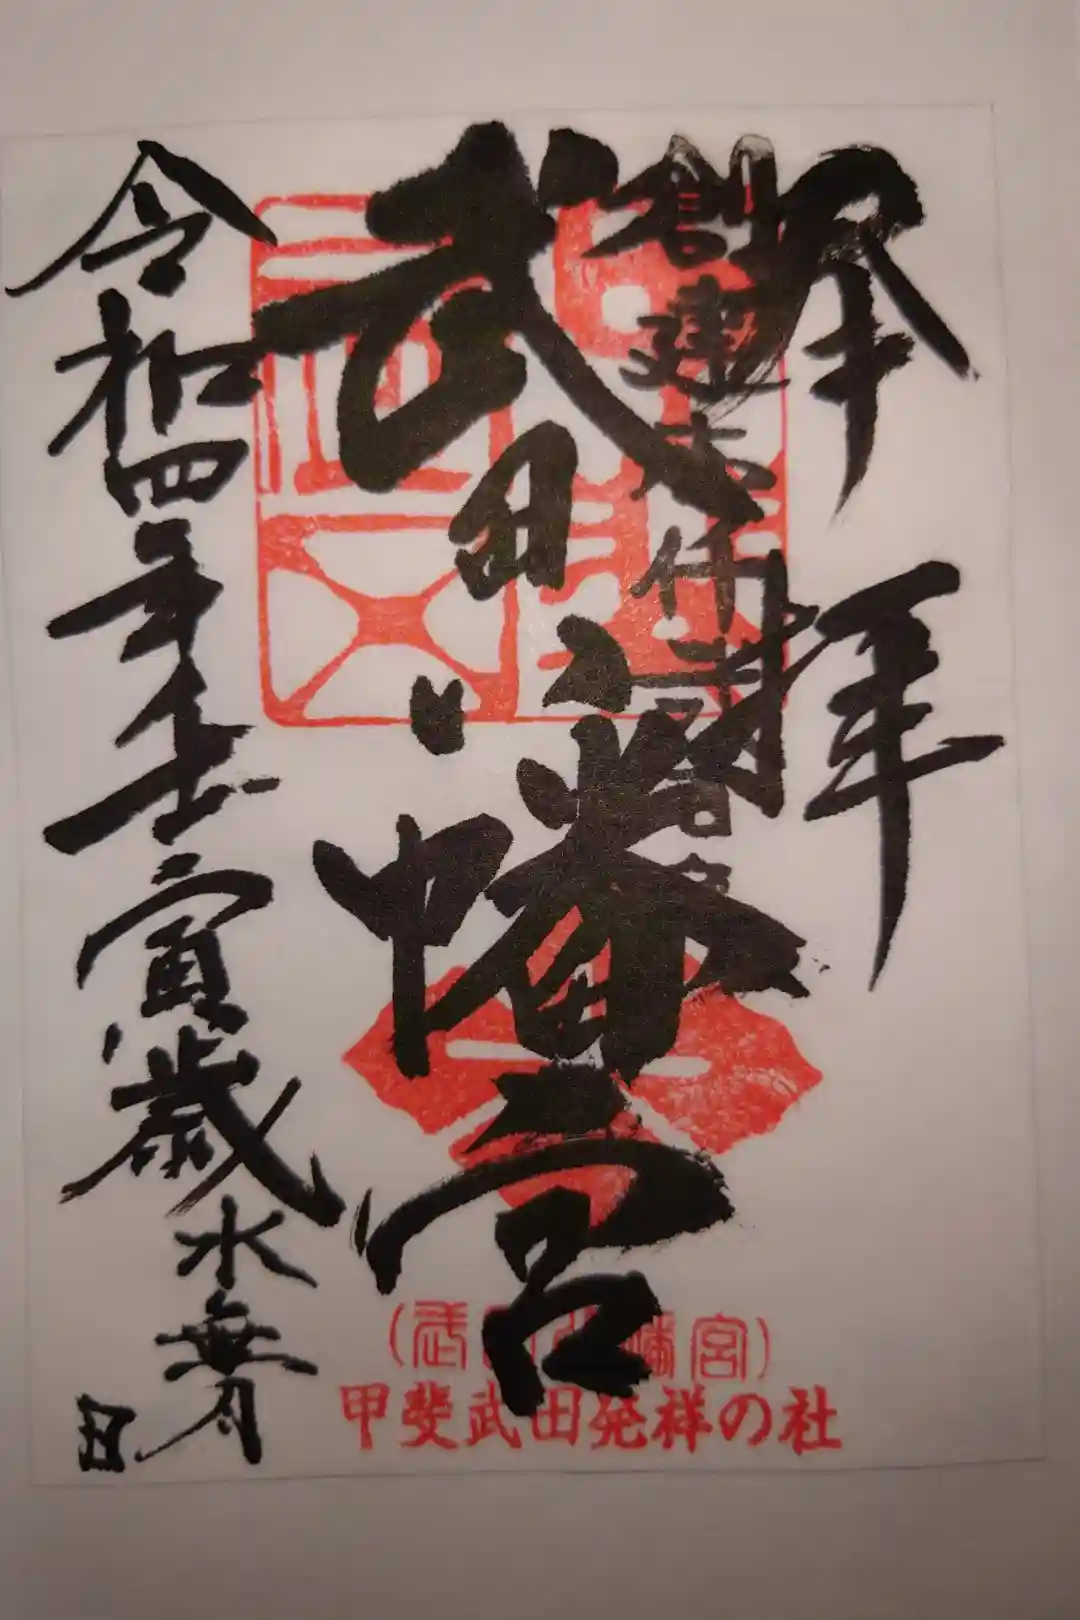 奉拝
創建壱仟二百
武田八幡宮
令和四年壬寅歳水無月
日
(武田八幡宮)
甲斐武田発祥の社